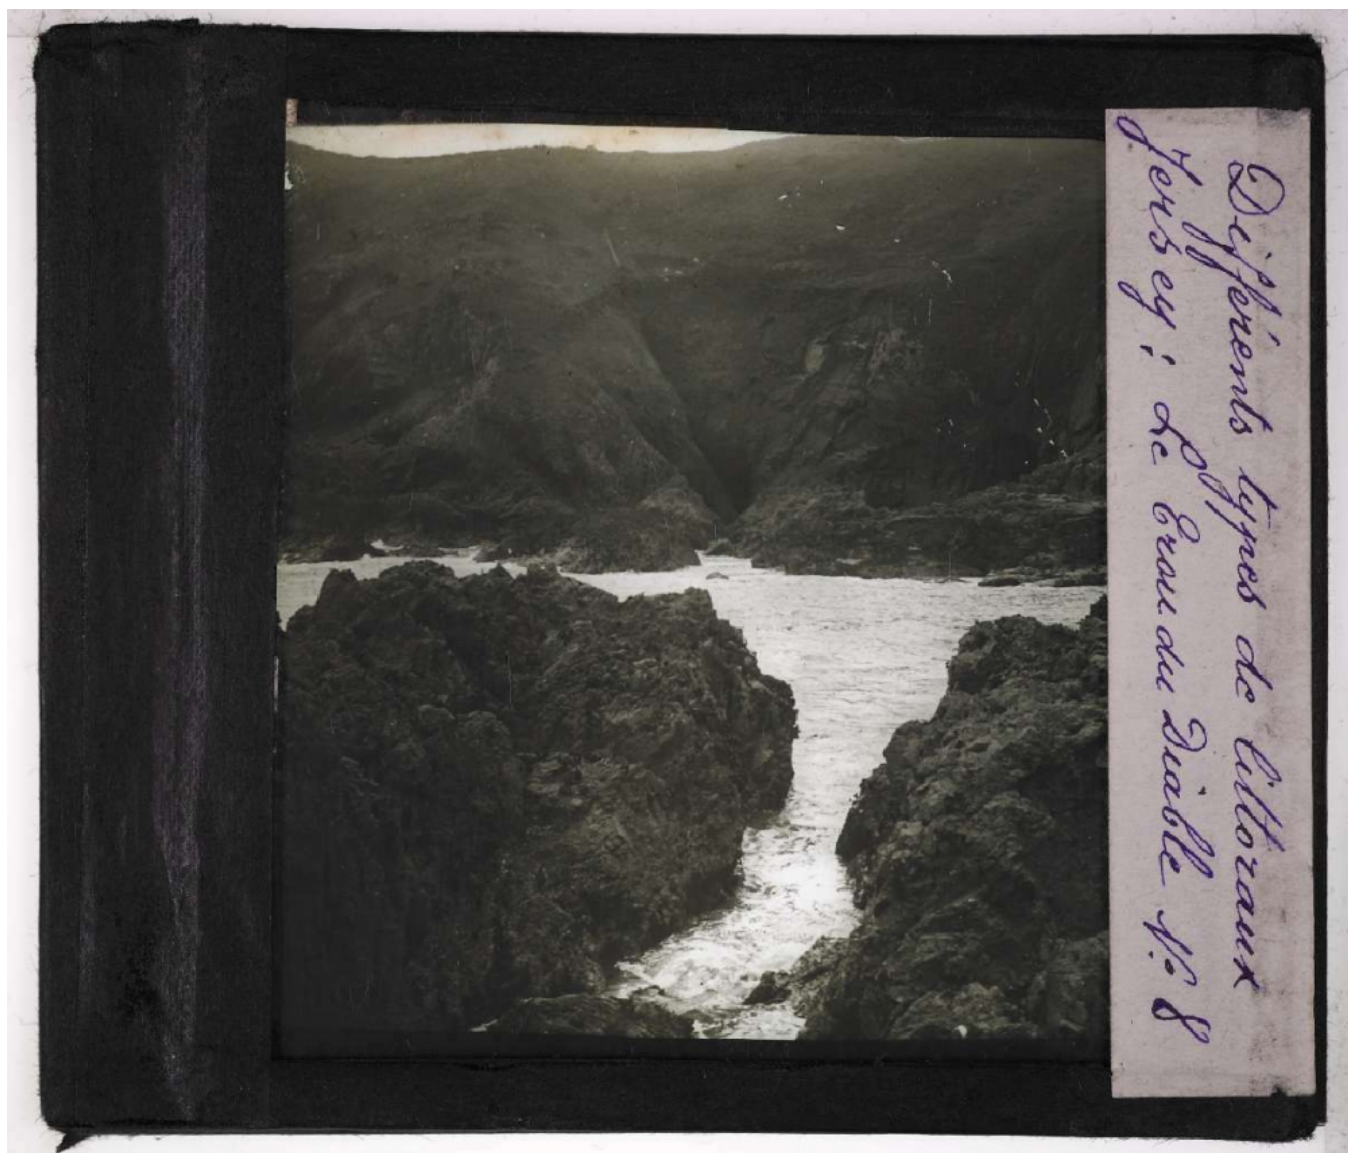 Différents types de littoraux
Jersey : Le Trou du Diable N° 8